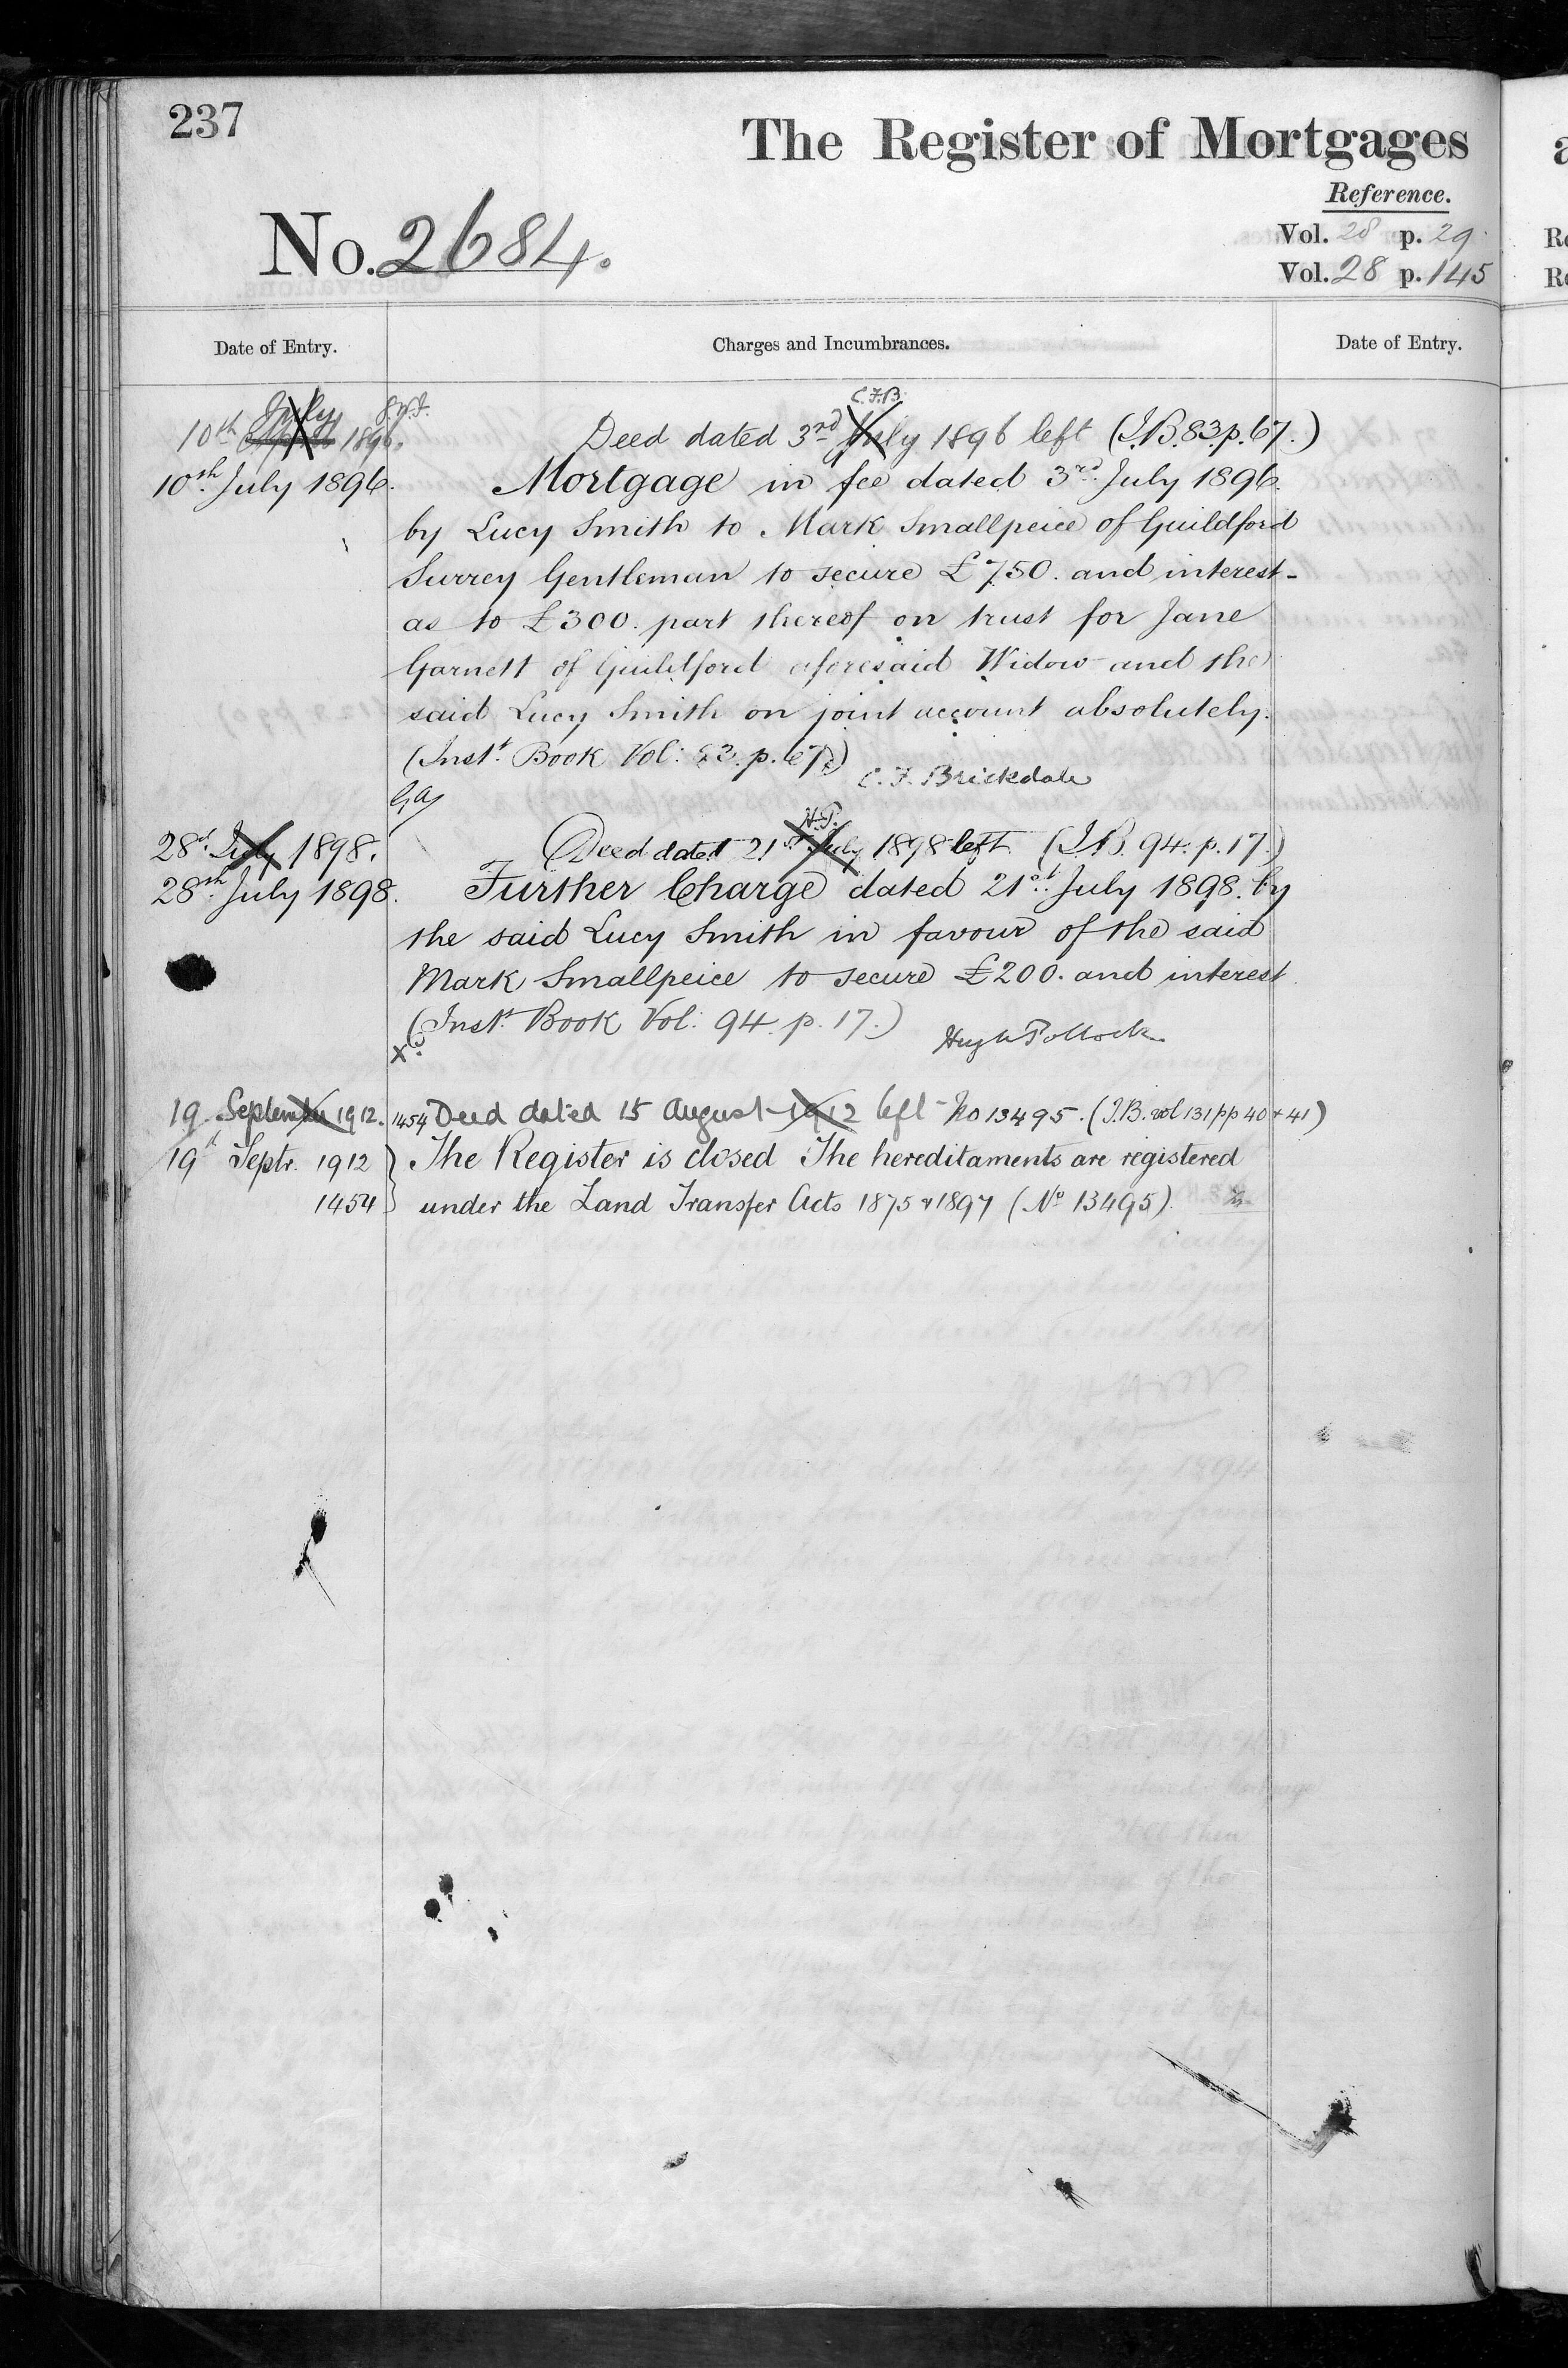 237
The Register of Mortgages
Reference.
No. 2684.
Vol. 28 p. 29
Vol. 28 p. 145
Date of Entry.
Charges and Incumbrances.
Date of Entry.
July
C.F.B.
10th 1896.
Deed dated 3rd July 1896 left (I.B. 83 p. 67.)
10th July 1896.
Mortgage in fee dated 3rd July 1896
by Lucy Smith to Mark Smallpeice of Guildford
Surrey Gentleman to secure £750. and interest -
as to £300. part thereof on trust for Jane
Garnett of Guildford aforesaid Widow and the
said Lucy Smith on joint account absolutely.
(Inst. Book Vol: 83. p. 67)
C. F. Brickdale
H.P.
28th July 1898.
Deed dated 21st July 1898 left (I.B. 94. p. 17.)
28th July 1898.
Further Charge dated 21st July 1898. by
the said Lucy Smith in favour of the said
Mark Smallpeice to secure £200. and interest
(Inst. Book Vol: 94. p. 17.)
Hugh Pollock
19 September 1912.
1454 Deed dated 15 August 1912 left No 13495. (I.B. vol 131 pp 40 + 41)
19th Septr. 1912
1454
The Register is closed The hereditaments are registered
under the Land Transfer Acts 1875 & 1897 (No 13495)